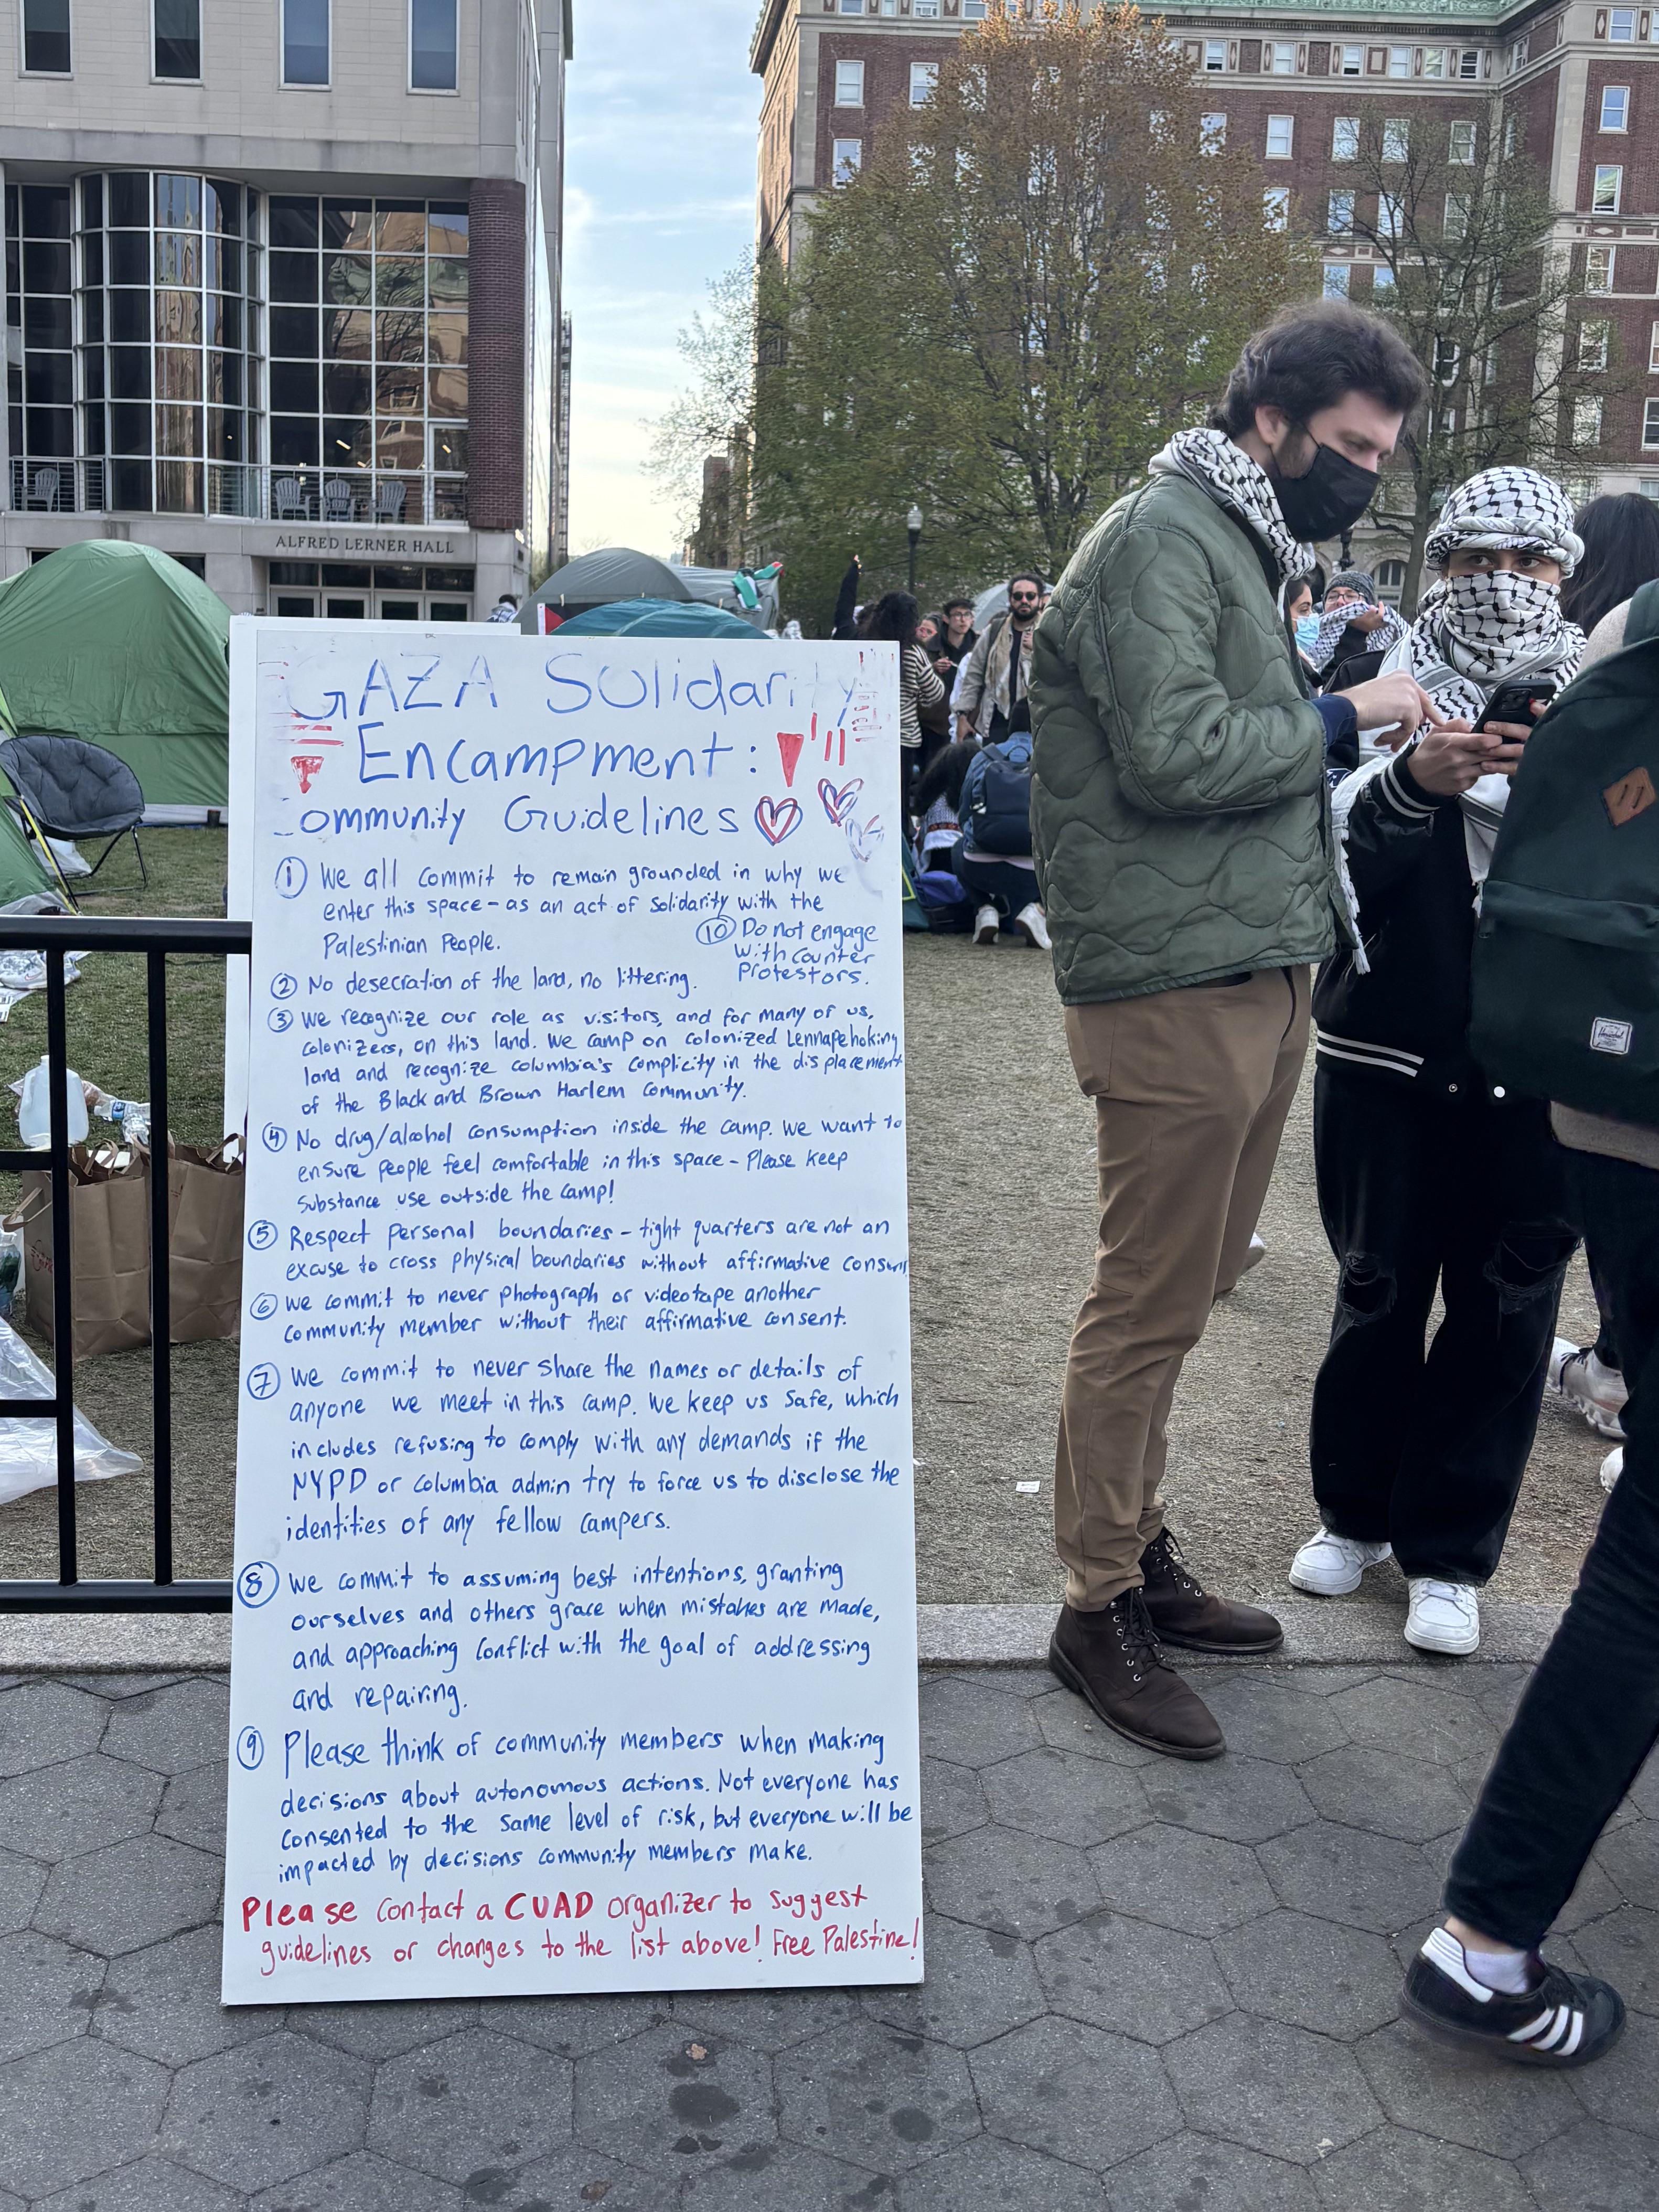 ALFRED LERNER HALL
GAZA Solidarity
Encampment:
Community Guidelines
① We all commit to remain grounded in why we
enter this space - as an act of solidarity with the
Palestinian People.
⑩ Do not engage
with counter
Protestors.
② No desecration of the land, no littering.
③ We recognize our role as visitors, and for many of us,
colonizers, on this land. We camp on colonized Lennapehoking
land and recognize columbia's complicity in the displacement
of the Black and Brown Harlem community.
④ No drug/alcohol consumption inside the camp. We want to
ensure people feel comfortable in this space - Please keep
substance use outside the camp!
⑤ Respect personal boundaries - tight quarters are not an
excuse to cross physical boundaries without affirmative consent
⑥ We commit to never photograph or videotape another
community member without their affirmative consent.
⑦ We commit to never share the names or details of
anyone we meet in this camp. We keep us safe, which
includes refusing to comply with any demands if the
NYPD or Columbia admin try to force us to disclose the
identities of any fellow campers.
⑧ We commit to assuming best intentions, granting
ourselves and others grace when mistakes are made,
and approaching conflict with the goal of addressing
and repairing.
⑨ Please think of community members when making
decisions about autonomous actions. Not everyone has
consented to the same level of risk, but everyone will be
impacted by decisions community members make.
Please contact a CUAD organizer to suggest
guidelines or changes to the list above! Free Palestine!
Herschel